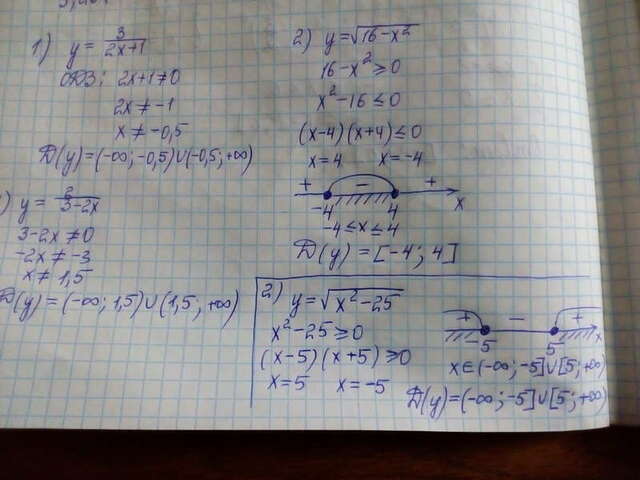 1) y = 3/(2x+1)
ОДЗ: 2x+1≠0
2x ≠ -1
x ≠ -0,5
D(y)=(-∞; -0,5)∪(-0,5; +∞)
) y = 2/(3-2x)
3-2x ≠0
-2x ≠ -3
x ≠ 1,5
D(y) = (-∞; 1,5)∪(1,5; +∞)
2) y=√(16-x²)
16-x² ≥0
x²-16 ≤0
(x-4)(x+4)≤0
x=4 x=-4
+ - +
-4 4 x
-4≤x≤4
D(y) = [-4; 4]
2) y=√(x²-25)
x²-25≥0
(x-5)(x+5)≥0
x=5 x=-5
+ - +
-5 5 x
x∈(-∞; -5]∪[5; +∞)
D(y)=(-∞; -5]∪[5; +∞)